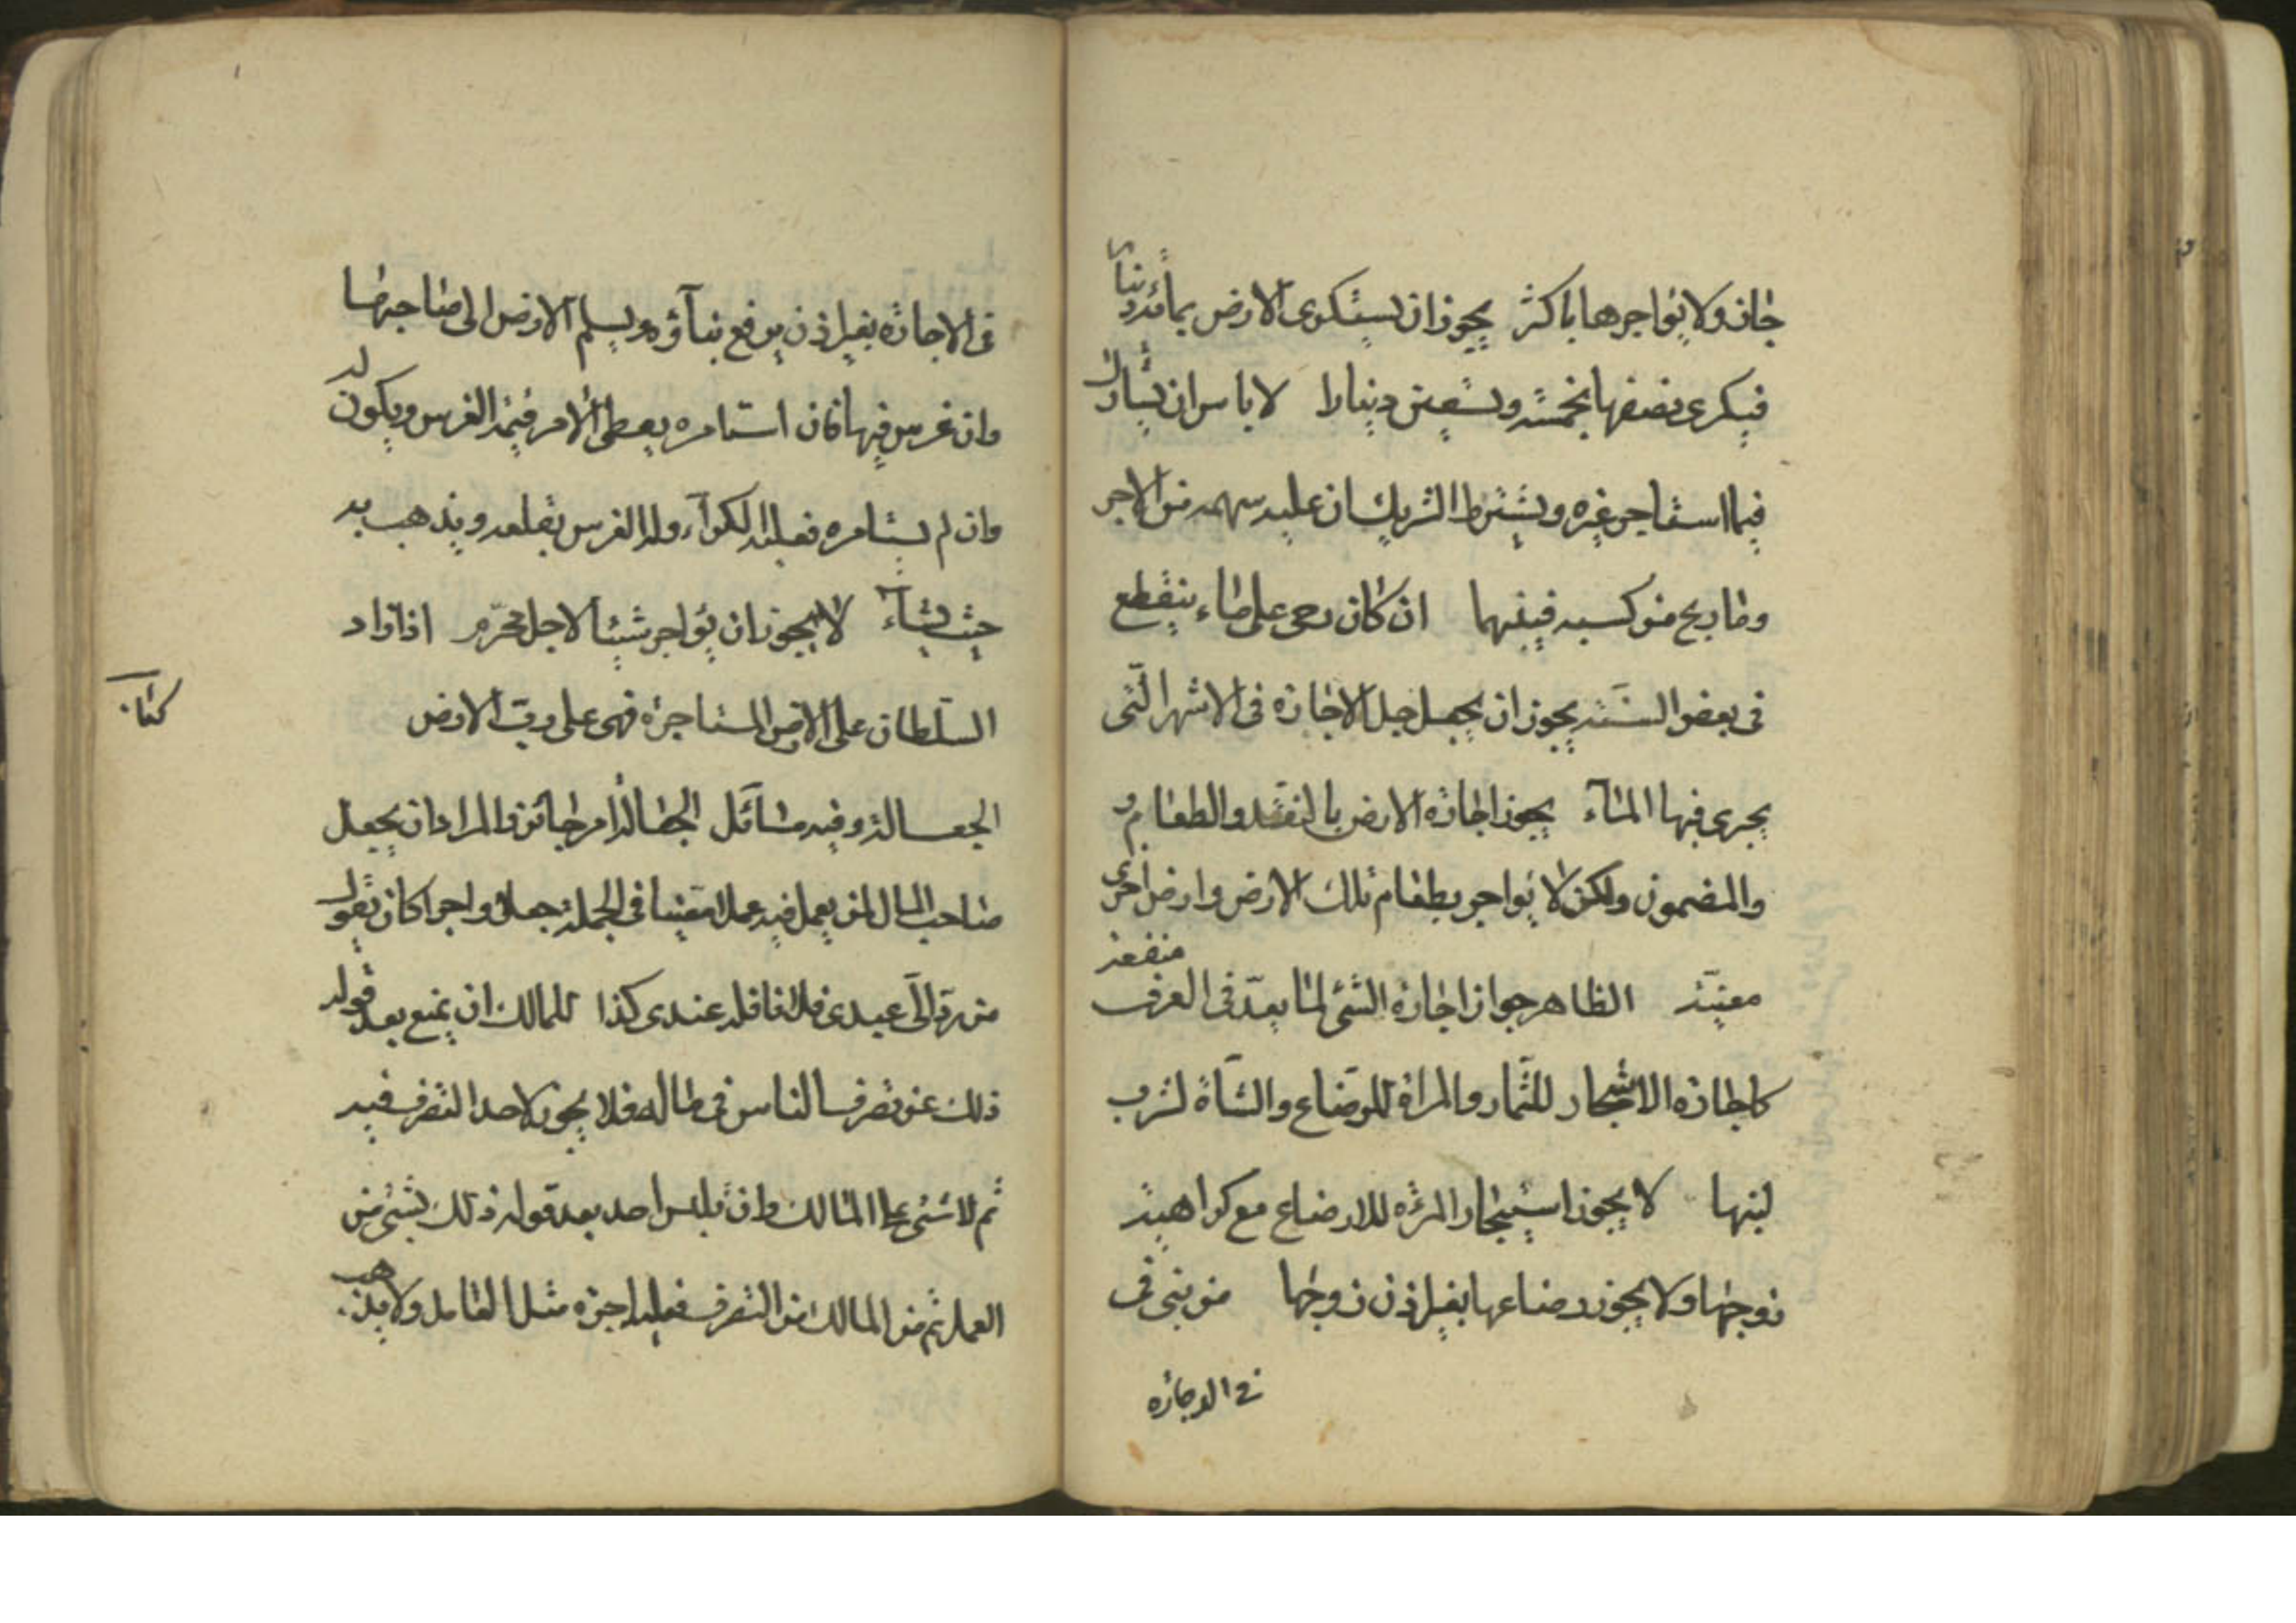 جاز ولا يؤاجرها باكثر يجوز ان يستكرى الارض بمائة دينار
فيكرى نصفها بخمسة وتسعين دينارا لا باس ان يشارك
فيما استاجر غيره ويشترط الشريك ان عليه سهمه من الاجر
وما ربح من كسبه فبينهما ان كان رحى على ماء ينقطع
فى بعض السنة يجوز ان يجعل جل الاجازة فى الاشهر التى
يجرى فيها المآء يجوز اجازة الارض بالنقد والطعام و
والمضمون ولكن لا يؤاجر بطعام تلك الارض وارض اخرى
معينة الظاهر جواز اجازة الشئ لما يعدّ فى العرف منفعة
كاجازة الاشجار للثمار والمراة للرضاع والشاة لشرب
لبنها لا يجوز استيجار المرئة للارضاع مع كراهية
زوجها ولا يجوز رضاعها بغير اذن زوجها من بنى فى
فى الاجازة
فى الاجازة بغير اذن يرفع بنآؤه ويسلم الارض الى صاحبها
وان غرس فيها فان استامره يعطى الامر قيمة الغرس ويكون له
وان لم يستامره فعليه الكرآء وله الغرس يقلعه ويذهب به
حيث يشآء لا يجوز ان يؤاجر شيئا لاجل محرّم اذا زاد
السلطان على الارض المستاجرة فهى على ربّ الارض
كتاب
الجعالة وفيه مسآئل الجعالة امر جائز والمراد ان يجعل
صاحب المال لمن يعمل فيه عملا معينا فى الجملة جعلا واجرا كان يقول
من ردّ الىّ عبدى فلانا فله عندى كذا للمالك ان يمنع بعد قوله
ذلك عن تصرف الناس فى ماله فلا يجوز لاحد التصرف فيه
ثم لا شئ على المالك وان تلبس احد بعد قوله ذلك بشئ من
العمل ثم منع المالك من التصرف فعليه اجرة مثل العامل ولا يذهب